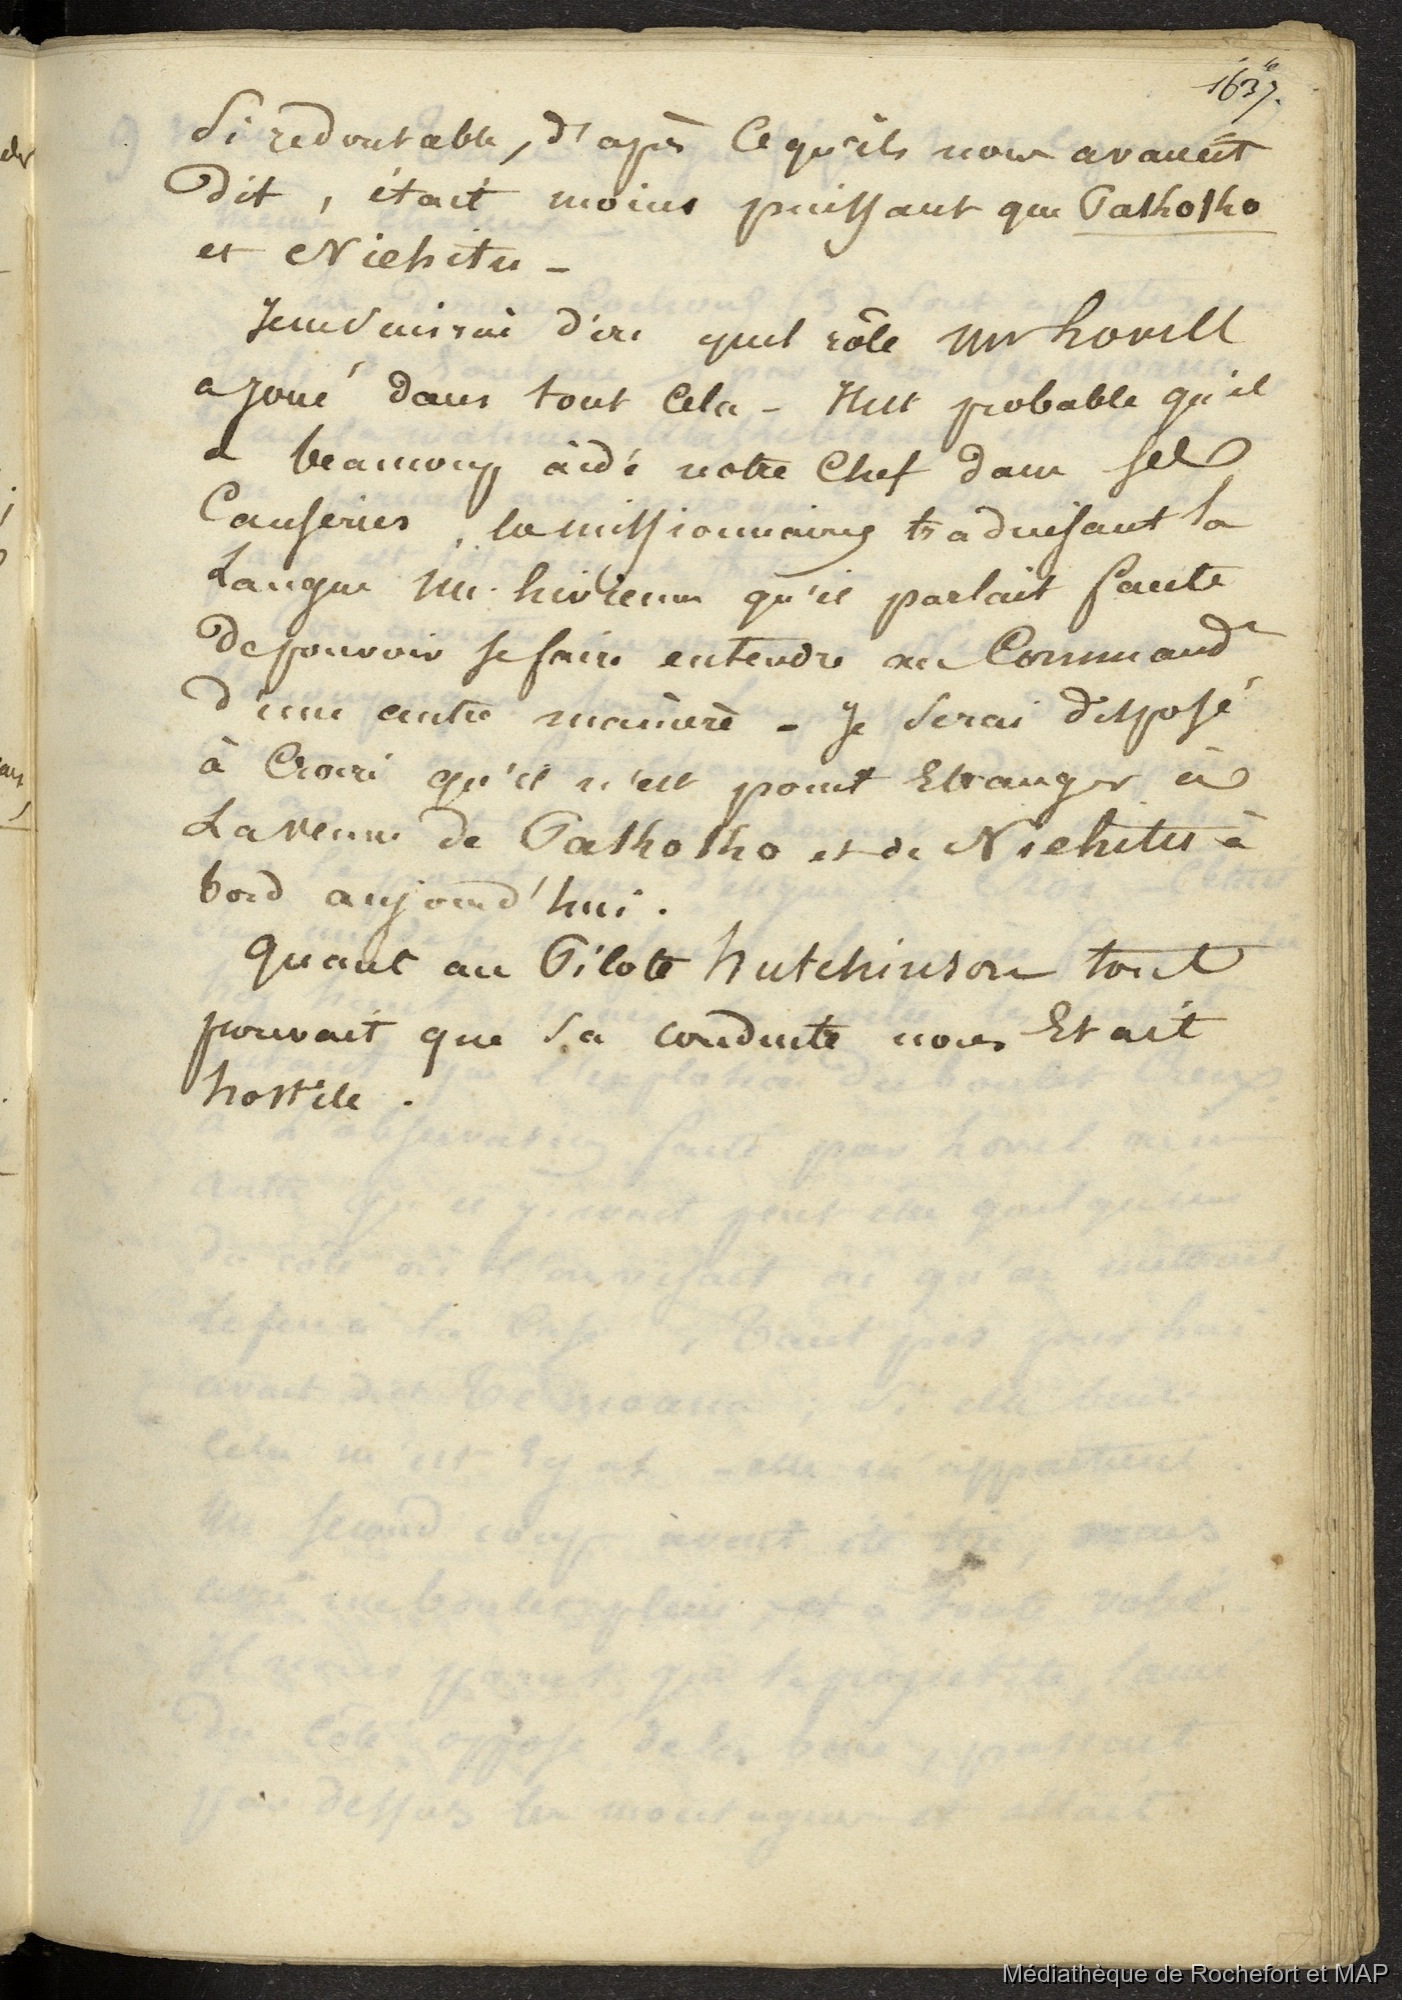 1637.
Si redoutable, d'après ce qu'ils nous avaient
Dit, était moins puissant que Pakhokho
et Niehitu -
Je ne saurai dire quel rôle Mr hovell
a joué dans tout cela - Il est probable qu'il
a beaucoup aidé notre Chef dans ses
Causeries, le missionnaire traduisant la
Langue nu-hivienne qu'il parlait faute
de pouvoir se faire entendre au Commandt
d'une autre manière - Je serai disposé
à Croire qu'il n'est point Etranger à
La venue de Pakhokho et de Niehitu à
bord aujourd'hui.
Quant au Pilote Hutchinson tout
prouvait que Sa conduite nous Etait
hostile.
Médiathèque de Rochefort et MAP